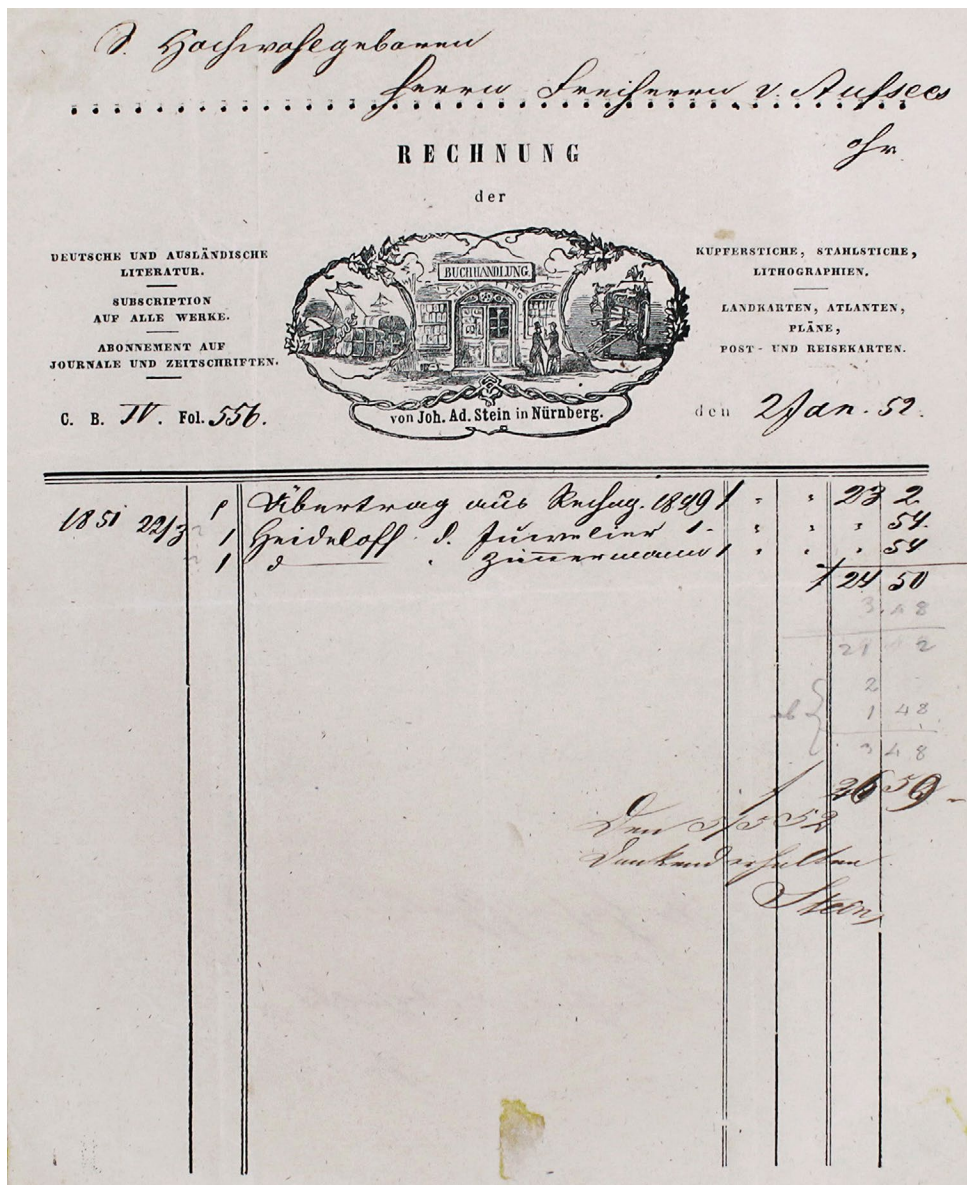 S. Hochwohlgeboren
Herrn Freiherrn v. Aufsees
RECHNUNG
der
DEUTSCHE UND AUSLÄNDISCHE
LITERATUR.
SUBSCRIPTION
AUF ALLE WERKE.
ABONNEMENT AUF
JOURNALE UND ZEITSCHRIFTEN.
BUCHHANDLUNG
KUPFERSTICHE, STAHLSTICHE,
LITHOGRAPHIEN.
LANDKARTEN, ATLANTEN,
PLÄNE,
POST- UND REISEKARTEN.
C. B. IV. Fol. 556.
von Joh. Ad. Stein in Nürnberg.
den 2 Jan. 52.
Übertrag aus Rechng. 1849 23 2
1851 22/3 1 Heideloff d. Juwelier 1. 54
1 d Zimmermann 1 54
24 50
3.48
21 2
2
ab 1 48
3 48
Den 5/5 52
Dankend erhalten
Stein